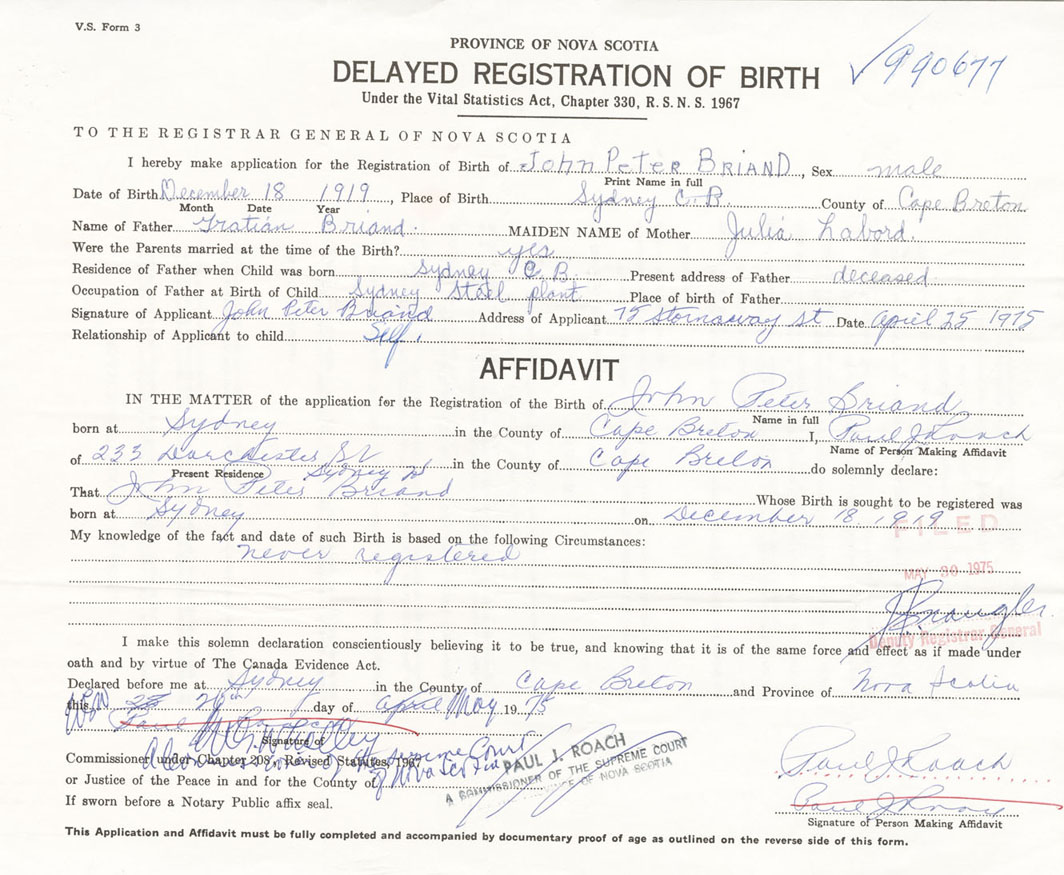 V.S. Form 3
PROVINCE OF NOVA SCOTIA
DELAYED REGISTRATION OF BIRTH
990677
Under the Vital Statistics Act, Chapter 330, R. S. N. S. 1967
TO THE REGISTRAR GENERAL OF NOVA SCOTIA
I hereby make application for the Registration of Birth of John Peter BRIAND, Sex male
Print Name in full
Date of Birth December 18 1919, Place of Birth Sydney C. B. County of Cape Breton
Month Date Year
Name of Father Gratian Briand. MAIDEN NAME of Mother Julia Labord.
Were the Parents married at the time of the Birth? yes
Residence of Father when Child was born Sydney C. B. Present address of Father deceased
Occupation of Father at Birth of Child Sydney Steel plant Place of birth of Father
Signature of Applicant John Peter Briand Address of Applicant 75 Stornaway St Date April 25 1975
Relationship of Applicant to child Self.
AFFIDAVIT
IN THE MATTER of the application for the Registration of the Birth of John Peter Briand
Name in full
born at Sydney in the County of Cape Breton I, Paul J Roach
Name of Person Making Affidavit
of 233 Dorchester St Sydney NS in the County of Cape Breton do solemnly declare:
Present Residence
That John Peter Briand Whose Birth is sought to be registered was
born at Sydney on December 18, 1919
FILED
My knowledge of the fact and date of such Birth is based on the following Circumstances:
never registered
MAY 30 1975
Deputy Registrar General
I make this solemn declaration conscientiously believing it to be true, and knowing that it is of the same force and effect as if made under
oath and by virtue of The Canada Evidence Act.
Declared before me at Sydney in the County of Cape Breton and Province of Nova Scotia
this day of April May 1975
Signature of
Commissioner under Chapter 208, Revised Statutes, 1967
of the Supreme Court
of Nova Scotia
PAUL J. ROACH
A COMMISSIONER OF THE SUPREME COURT
PROVINCE OF NOVA SCOTIA
Paul J Roach
or Justice of the Peace in and for the County of
If sworn before a Notary Public affix seal.
Paul J Roach
Signature of Person Making Affidavit
This Application and Affidavit must be fully completed and accompanied by documentary proof of age as outlined on the reverse side of this form.